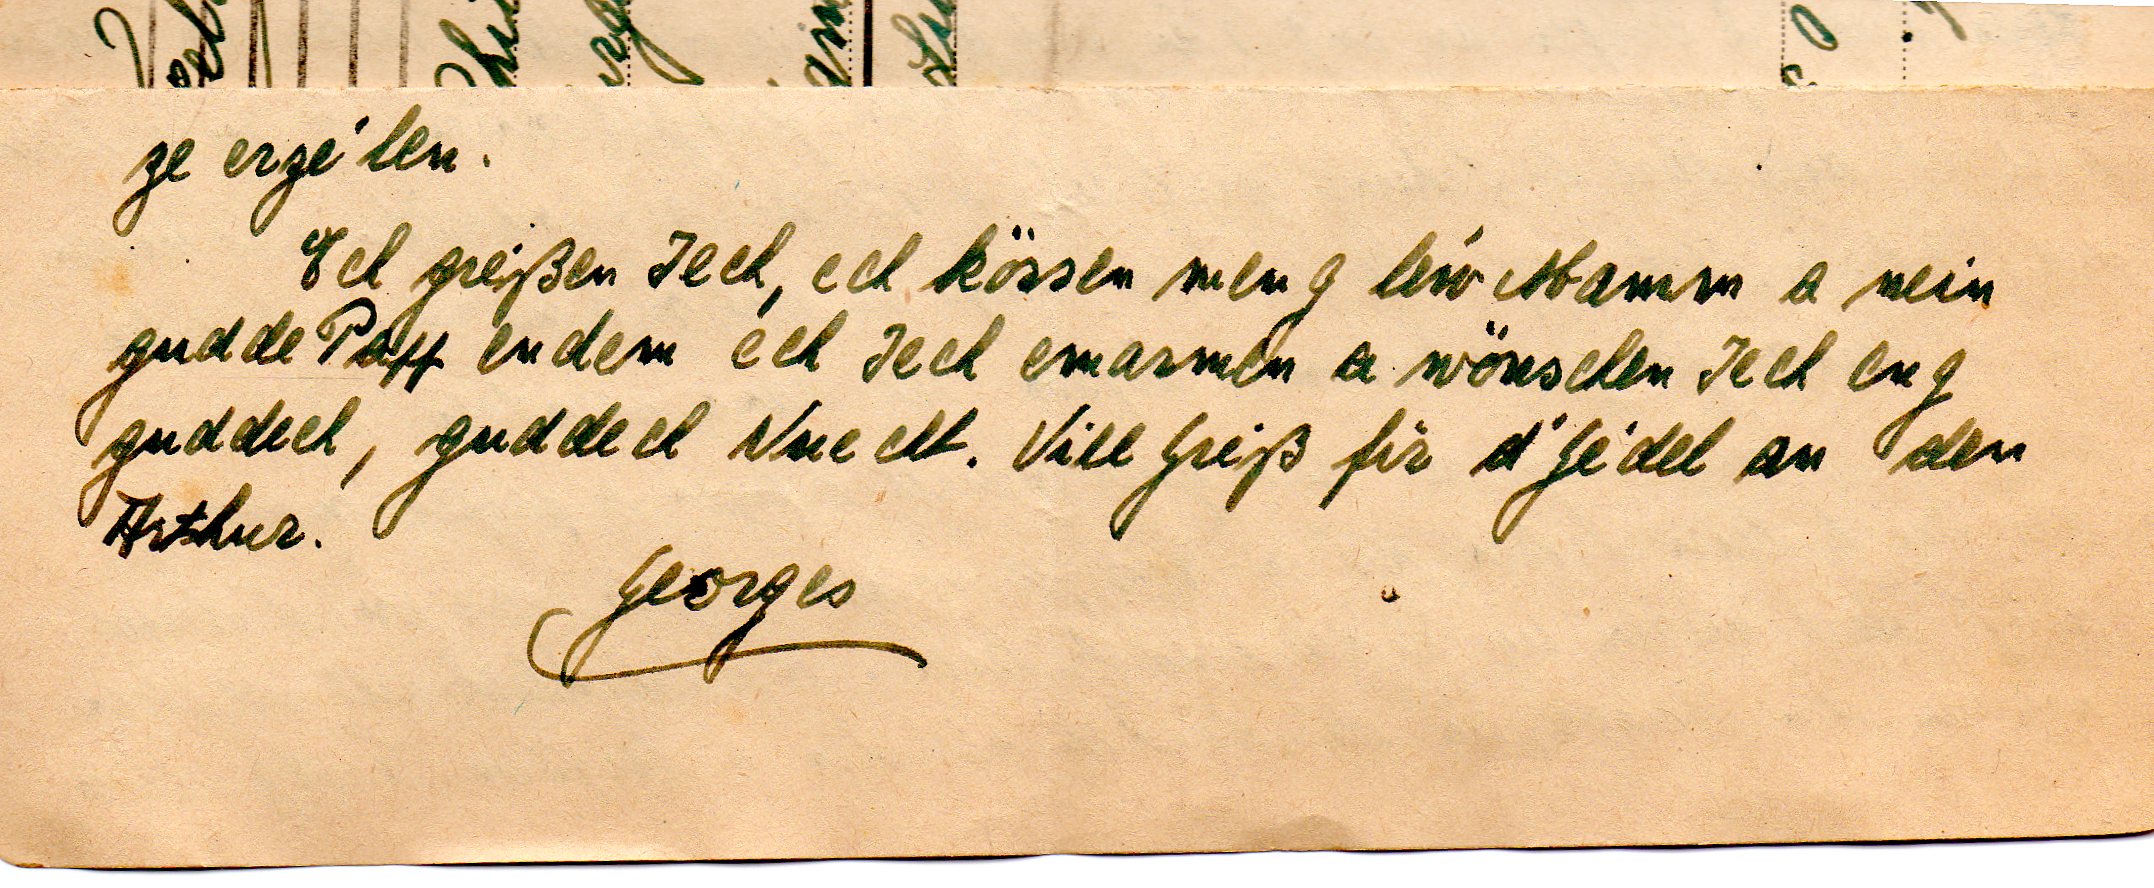 ze erzé'len.
Ech greißen Iech, ech kössen meng léiw Mamm a mein
gudde Papp endem éch Iech emarmen a wönschen Iech eng
guddech, guddech Nuecht. Vill Greiß fir d'Gé'del an den
Arthur.
Georges